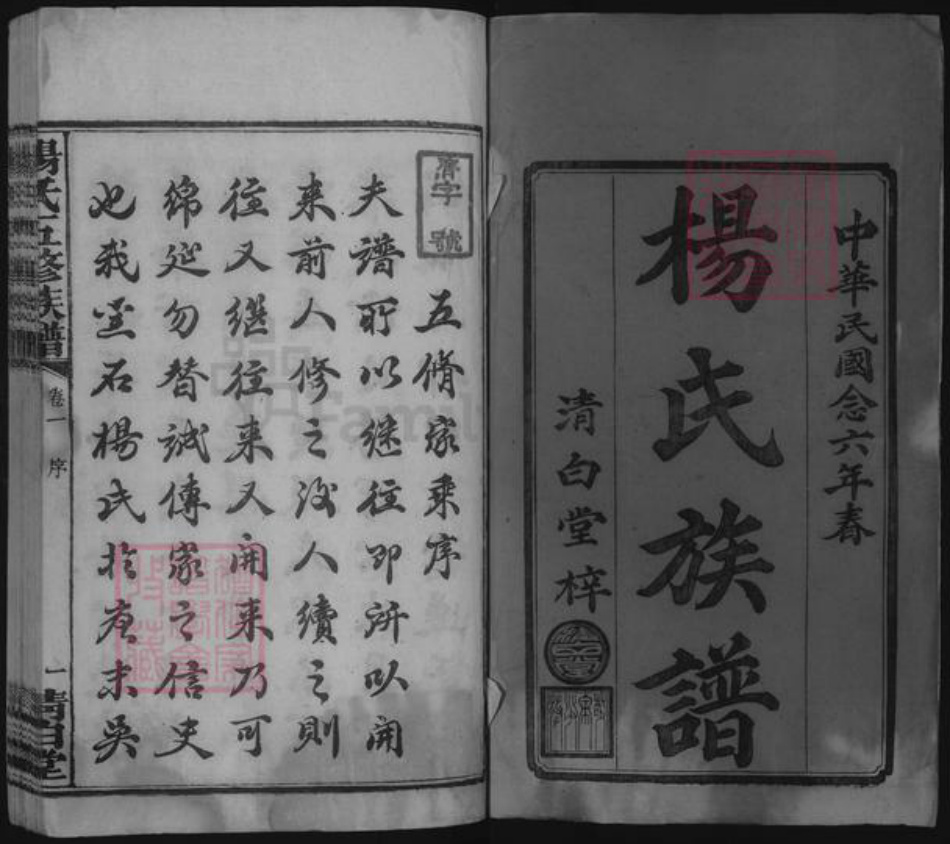 中華民國念六年春
楊氏族譜
清白堂梓
字號
五脩家乘序
夫譜所以继往即所以開
来前人修之後人續之則
往又继往来又開来乃可
綿延勿替誠傳家之信史
也我堂石楊氏於唐末吳
楊氏五修族譜
卷一
序
一
清白堂